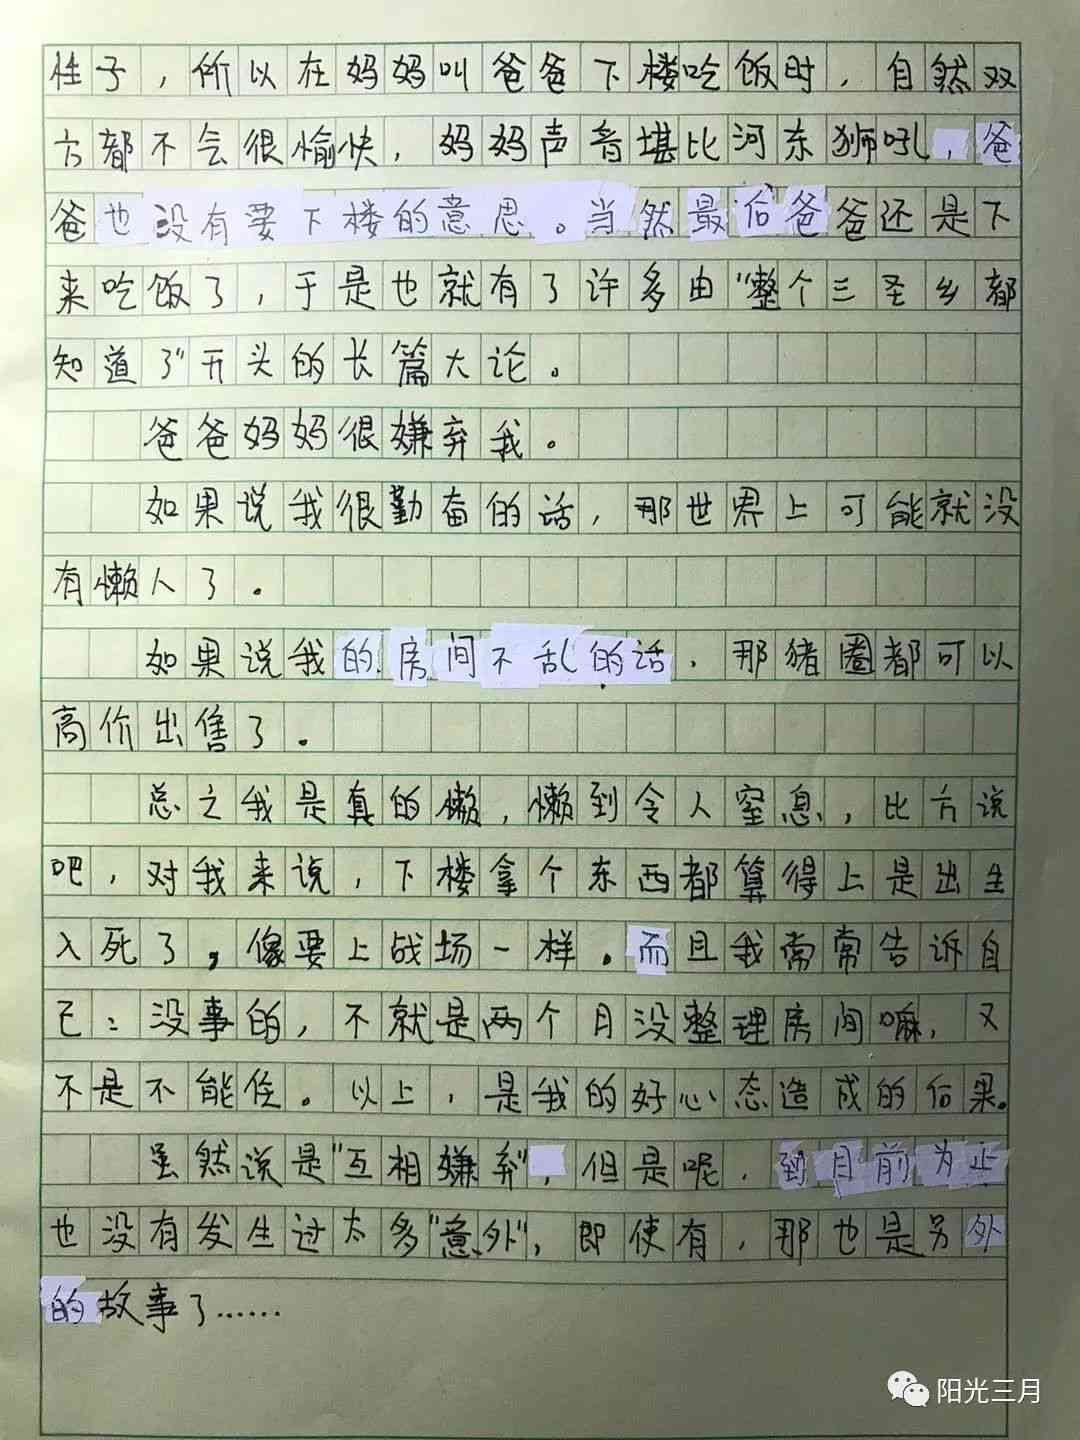 性子，所以在妈妈叫爸爸下楼吃饭时，自然双
方都不会很愉快，妈妈声音堪比河东狮吼，爸
爸也没有要下楼的意思。当然最后爸爸还是下
来吃饭了，于是也就有了许多由“整个三圣乡都
知道了”开头的长篇大论。
爸爸妈妈很嫌弃我。
如果说我很勤奋的话，那世界上可能就没
有懒人了。
如果说我的房间不乱的话，那猪圈都可以
高价出售了。
总之我是真的懒，懒到令人窒息，比方说
吧，对我来说，下楼拿个东西都算得上是出生
入死了，像要上战场一样。而且我常常告诉自
己：没事的，不就是两个月没整理房间嘛，又
不是不能住。以上，是我的好心态造成的后果。
虽然说是“互相嫌弃”，但是呢，到目前为止
也没有发生过太多“意外”，即使有，那也是另外
的故事了……
阳光三月